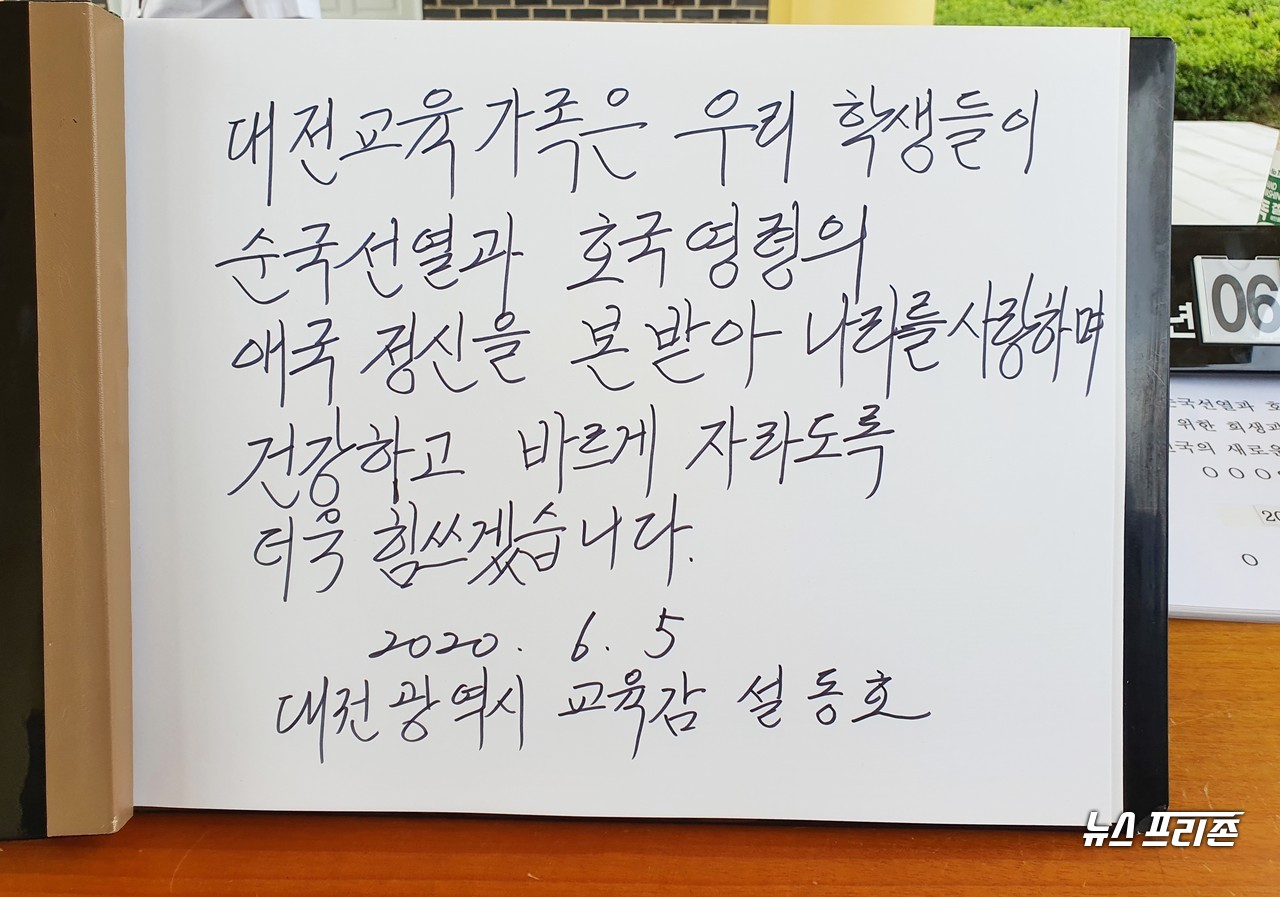 대전교육 가족은 우리 학생들이
순국선열과 호국영령의
애국 정신을 본받아 나라를 사랑하며
건강하고 바르게 자라도록
더욱 힘쓰겠습니다.
2020. 6. 5
대전광역시 교육감 설동호
년 06
국선열과 호
위한 희생과
국의 새로운
○○○
20
○
뉴스프리존